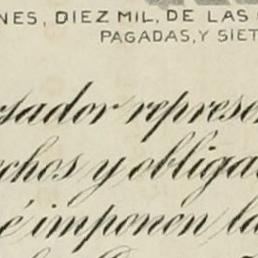 NES, DIEZ MIL, DE LAS
PAGADAS, Y SIET
sador represen
chos y obligac
é imponen la